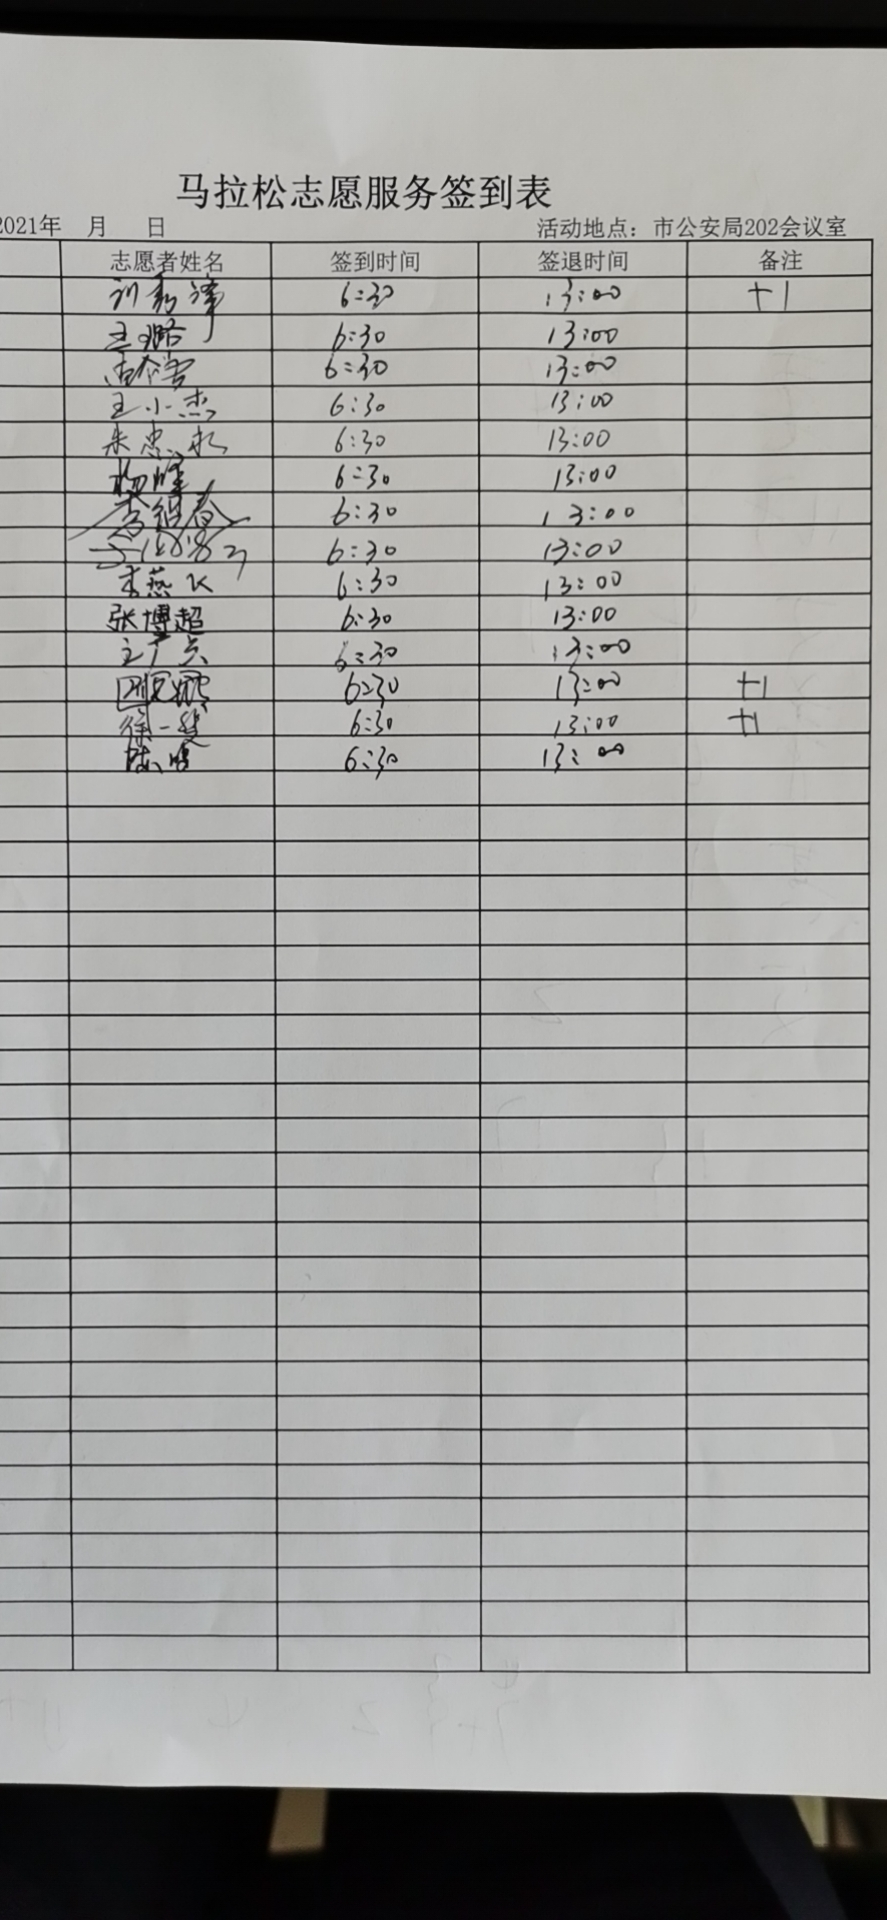 马拉松志愿服务签到表
2021年 月 日 活动地点：市公安局202会议室
志愿者姓名 签到时间 签退时间 备注
6:30 13:00 +1
王璐 6:30 13:00
6:30 13:00
王小杰 6:30 13:00
朱忠 6:30 13:00
杨峰 6:30 13:00
李绍春 6:30 13:00
6:30 13:00
李燕飞 6:30 13:00
张博超 6:30 13:00
王广兵 6:30 13:00
6:30 13:00 +1
徐一斐 6:30 13:00 +1
陈晗 6:30 13:00